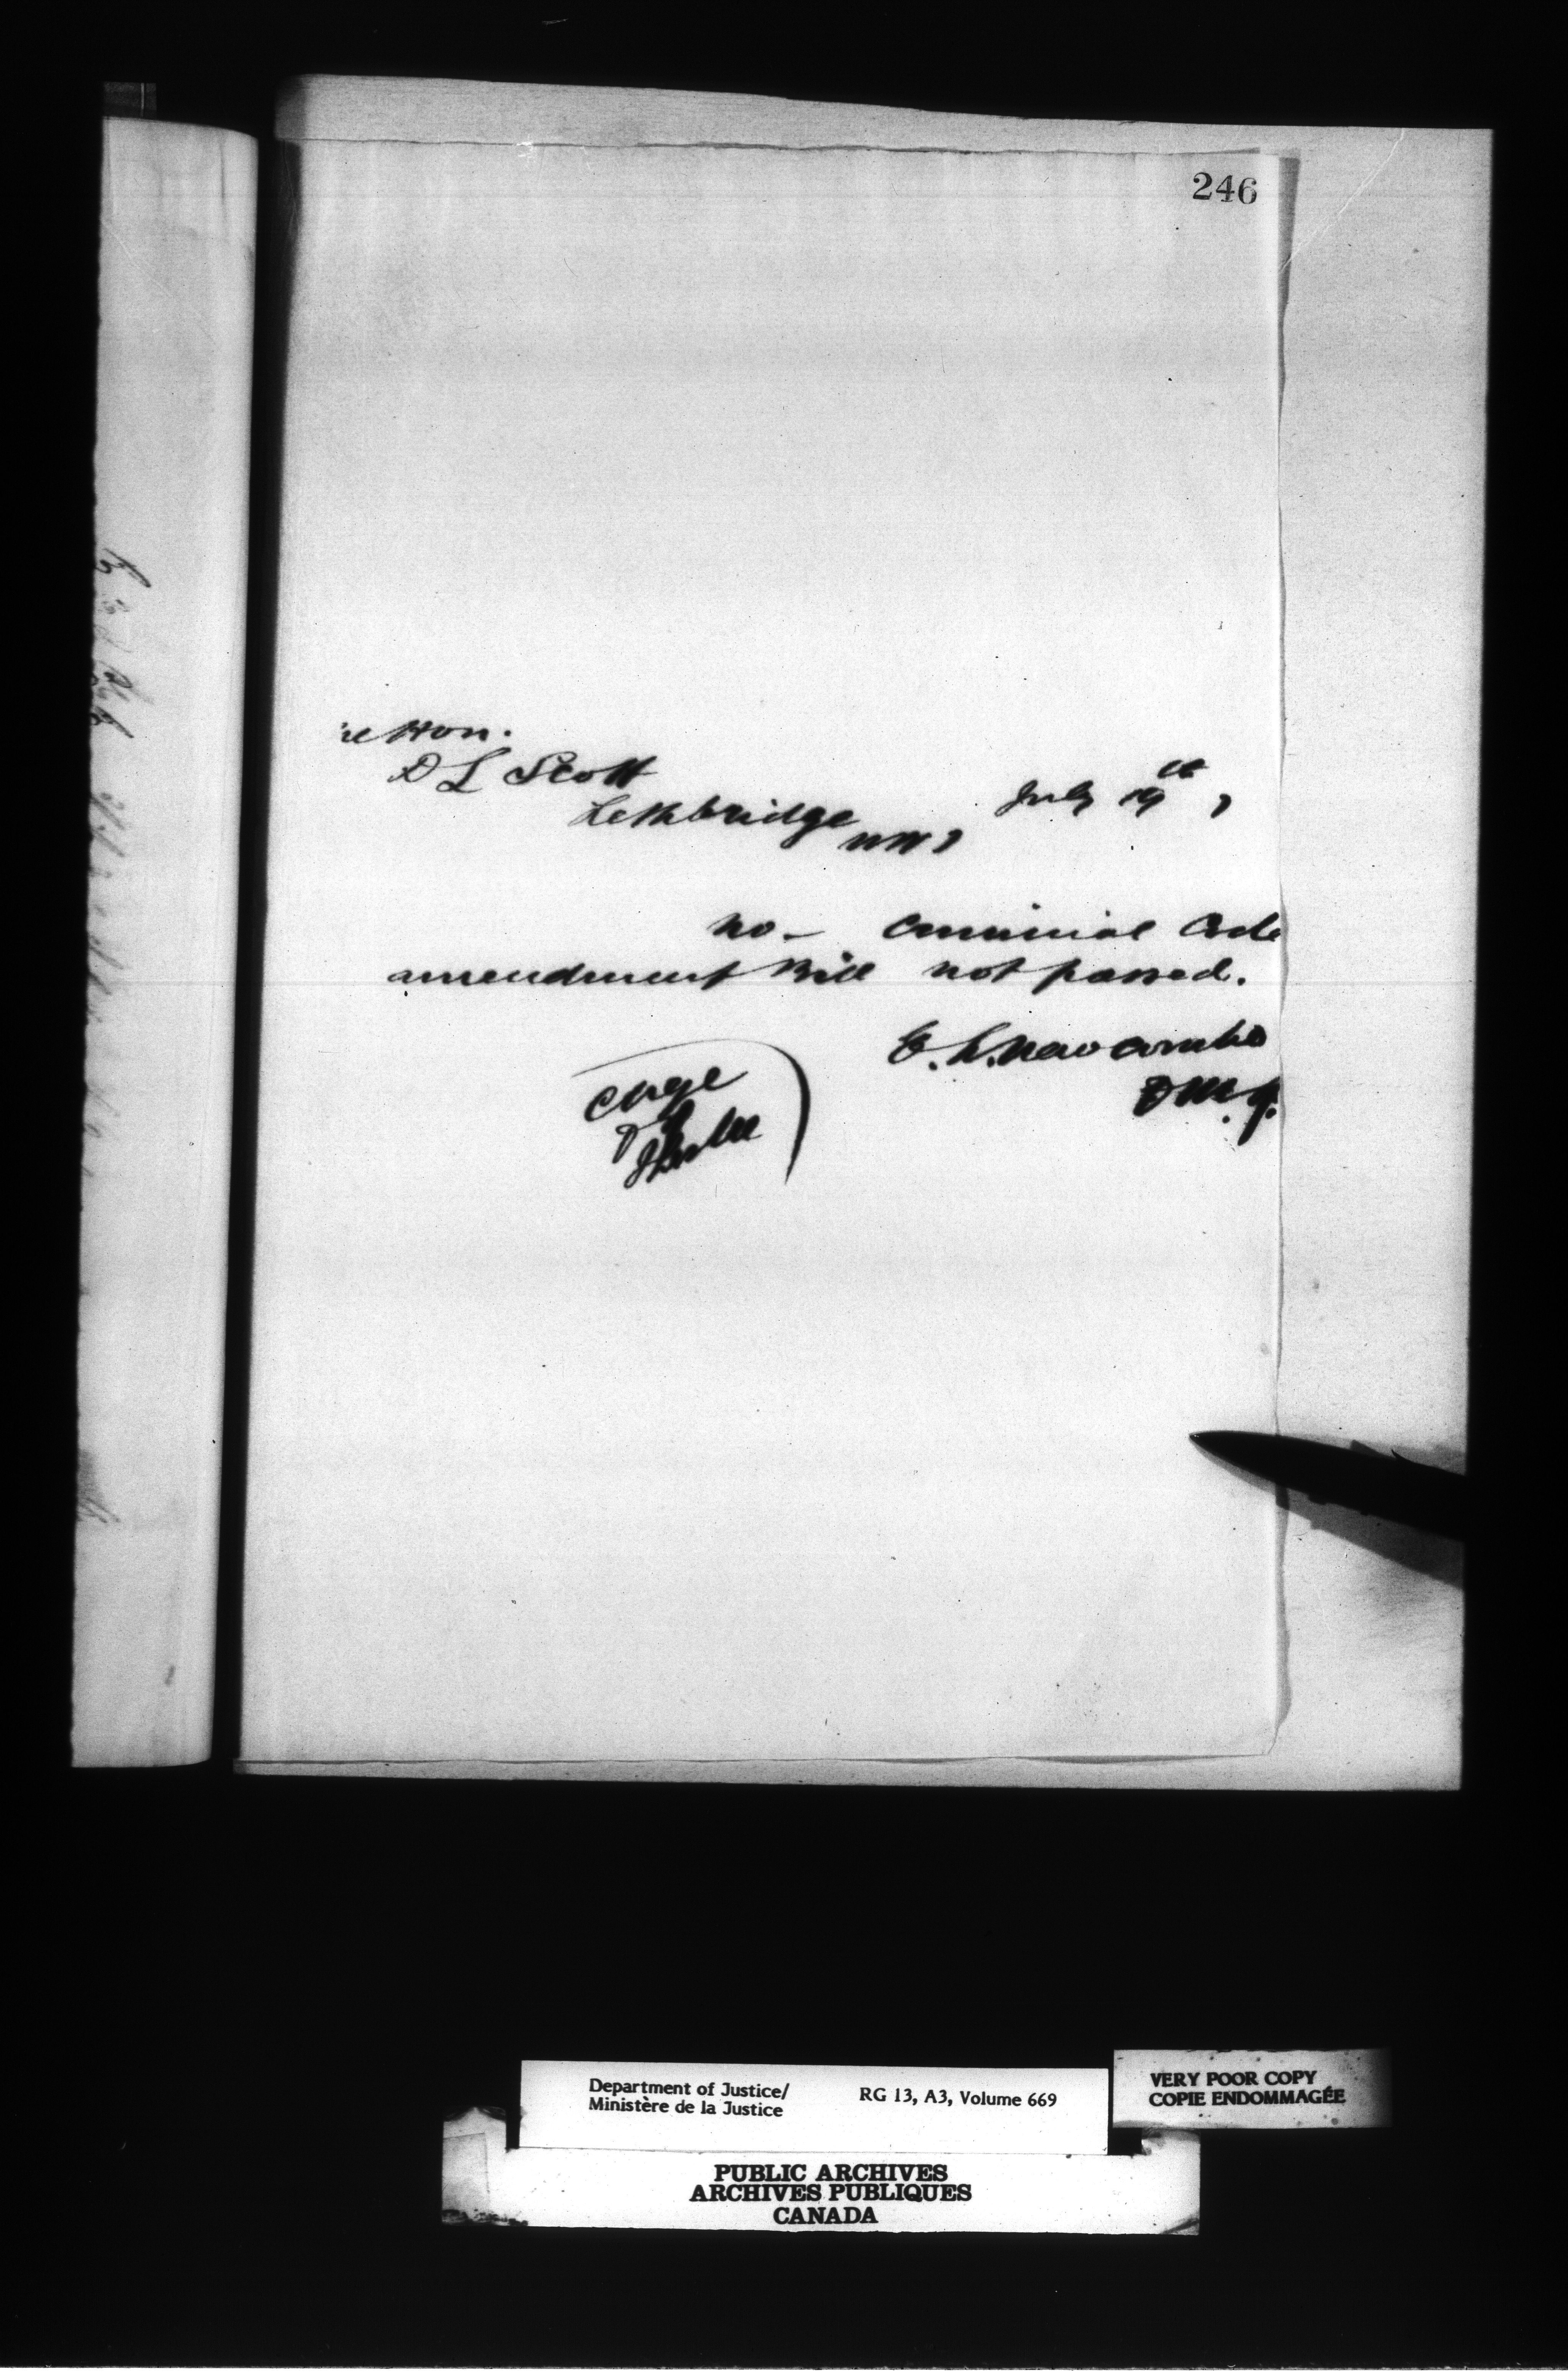 246
Hon.
D L Scott
Lethbridge NWT
July 19th,
No - Criminal Code
amendment Bill not passed.
E. L. Newcombe
D.M.J.
Chge
D of
Justice
Department of Justice/
Ministère de la Justice
RG 13, A3, Volume 669
VERY POOR COPY
COPIE ENDOMMAGÉE
PUBLIC ARCHIVES
ARCHIVES PUBLIQUES
CANADA